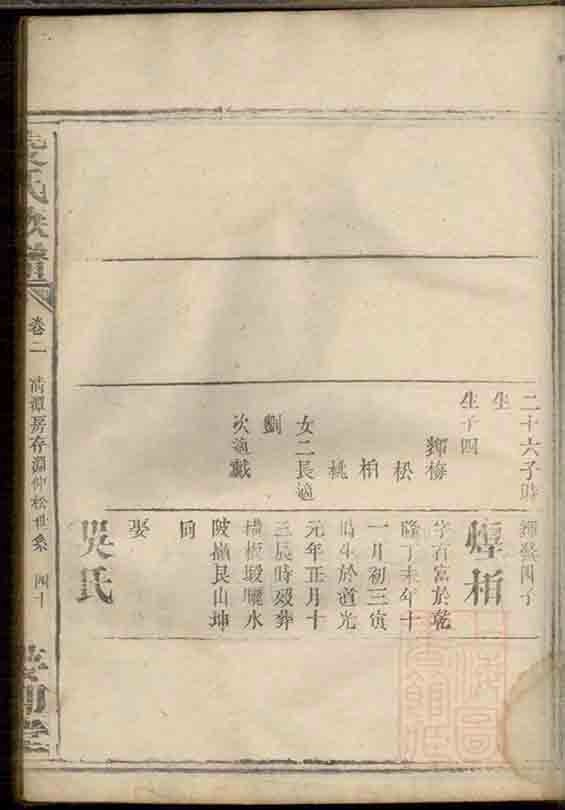 二十六子時
生
生子四
輝梅
松
柏
桃
女二長適
劉
次適戴
輝發四子
輝栢
字百富於乾
隆丁未年十
一月初三寅
時生於道光
元年正月十
三辰時歿葬
橫板塅曬水
陂艮山坤
向
娶
吳氏
氏族譜
卷二
清潭房存淵仲松世系
四十